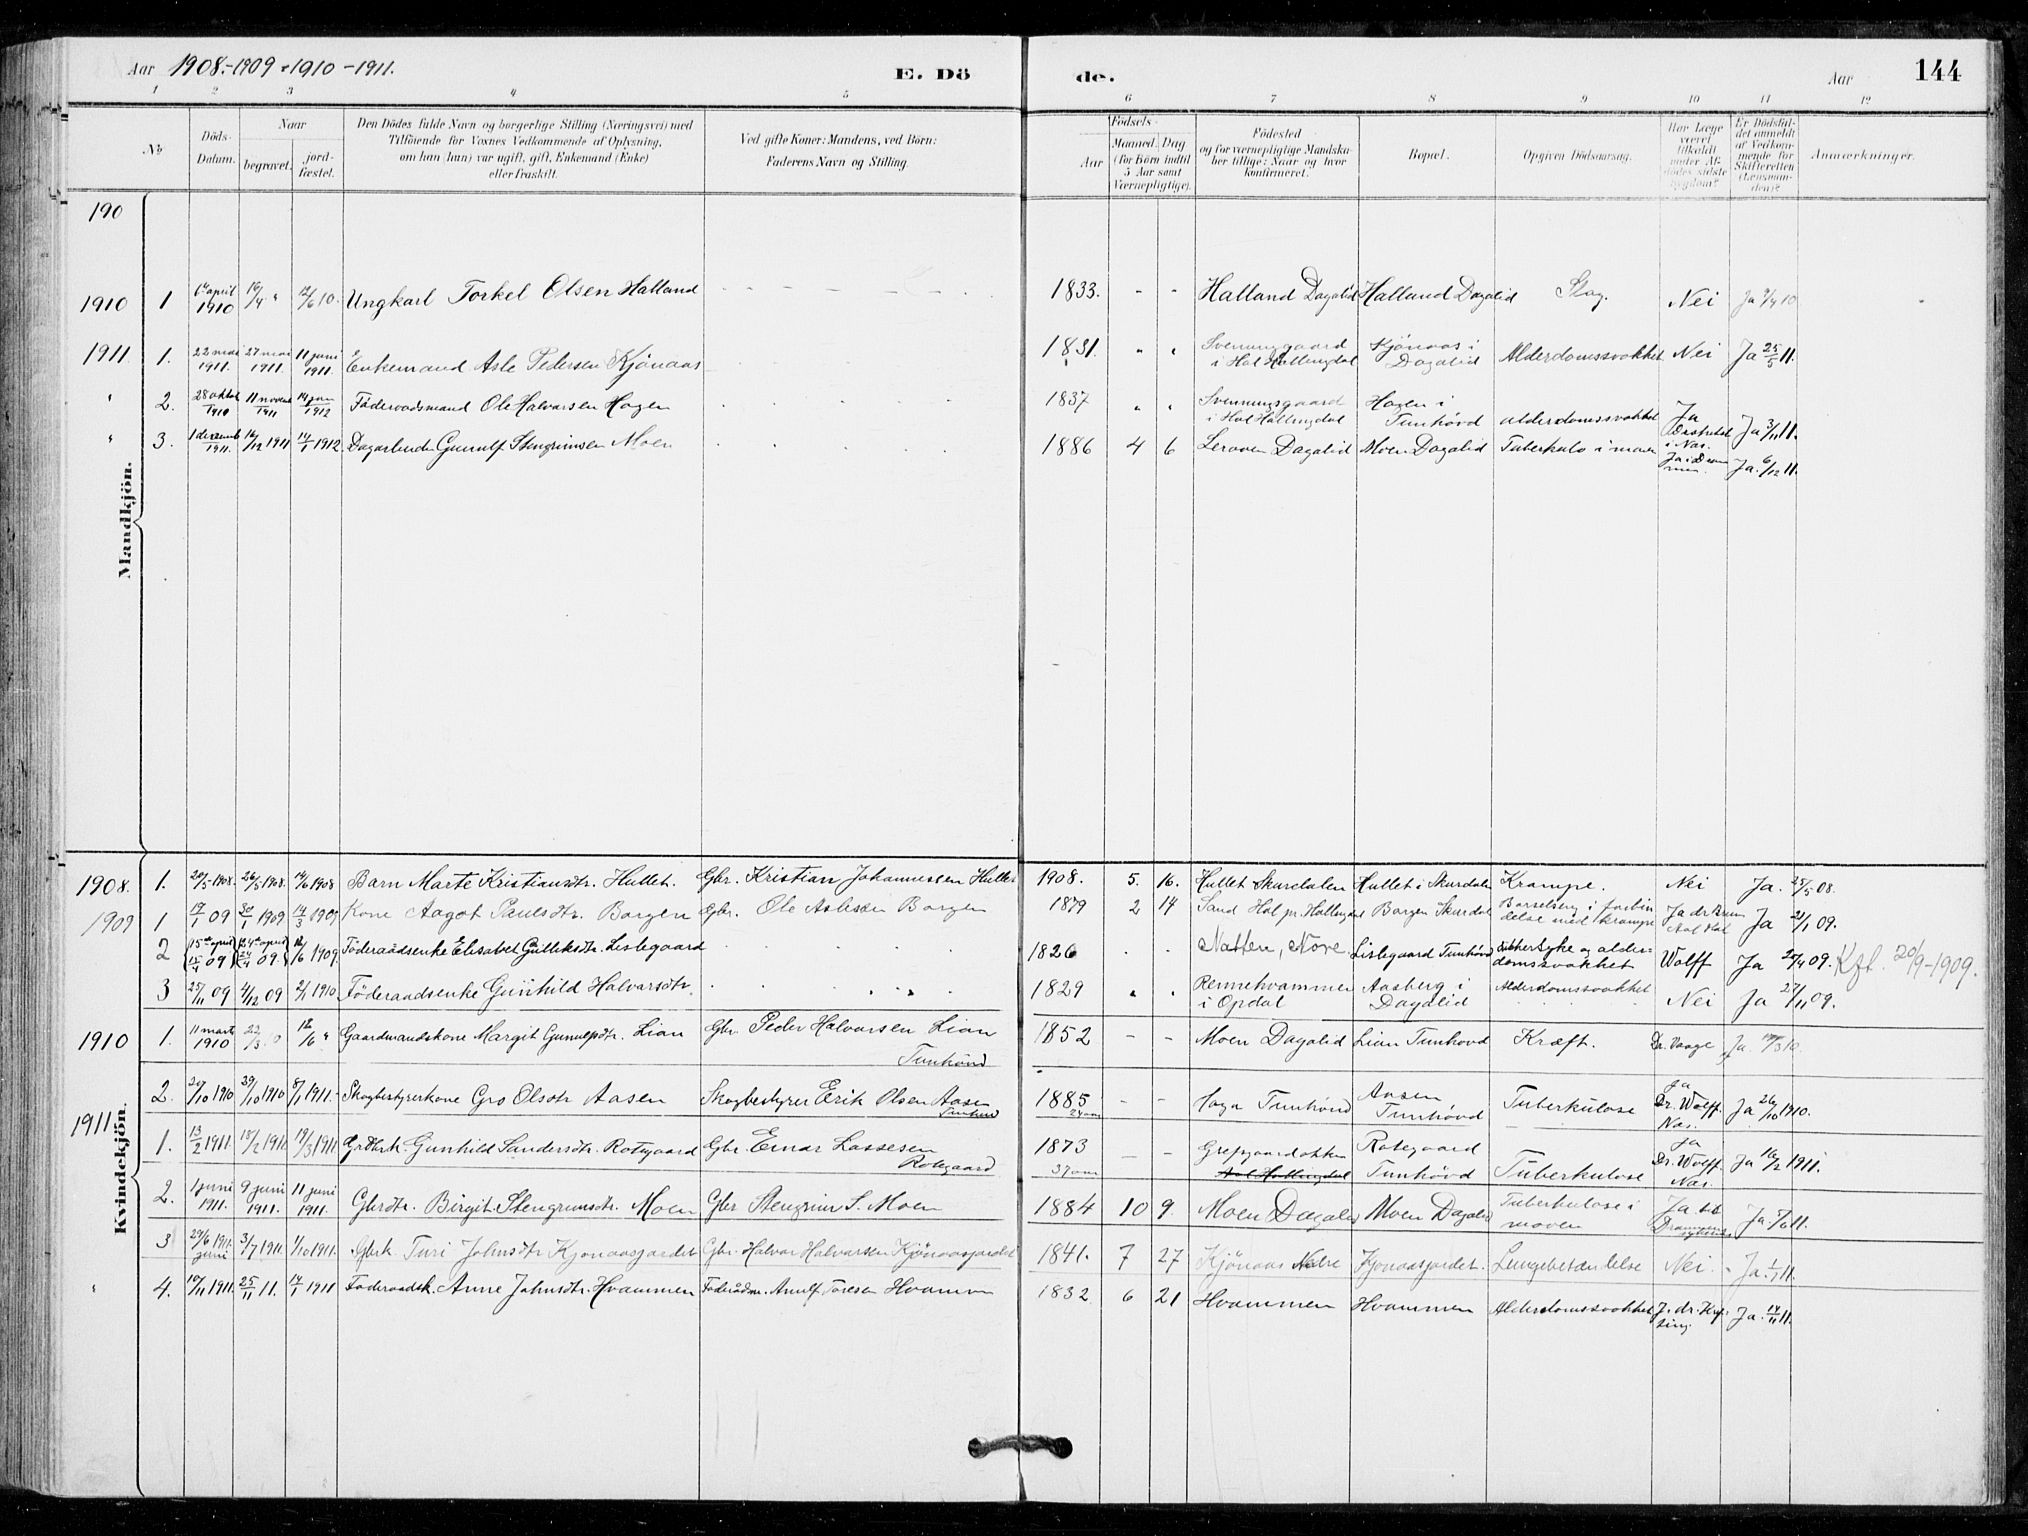 Aar 1908.-1909-1910-1911. E. Dö de. Aar 144
1 2 3 4 5 6 7 8 9 10 11 12
No Döds-Datum. Naar begravet. jord-fæstet. Den Dödes fulde Navn og borgerlige Stilling (Næringsvei) med Tilföiende for Voxnes Vedkommende af Oplysning, om han (hun) var ugift, gift, Enkemand (Enke) eller fraskilt. Ved gifte Koner: Mandens, ved Börn: Faderens Navn og Stilling. Födsels- Aar Maaned. Dag (for Börn indtil 5 Aar samt Værnepligtige). Födested og for værnepligtige Mandska-ber tillige: Naar og hvor konfirmeret. Bopæl. Opgiven Dödsaarsag. Har Læge været tilkaldt under Af-dödes sidste Sygdom? Er Dödsfal-det anmeldt af Vedkom-mende for Skifteretten (Lensman-den)? Anmærkninger.
190
1910 1 6te april 1910 16/4 " 12/6 10. Ungkarl Torkel Olsen Halland 1833. - - Halland Dagalid Halland Dagalid Slag. Nei Ja 9/4 10
1911. 1. 22 mai 1911. 27 mai 1911. 11 juni 1911. Enkemand Asle Pedersen Kjönaas 1831. " " Svenunggaard i Hol Hallingdal Kjönaas i Dagalid Alderdomssvakhet Nei Ja 25/5 11.
" 2. 28 oktob 1910 11 novem 1911 14 jan 1912 Föderaadsmand Ole Halvarsen Hagen 1837 " " Svenningsgaard i Hol Hallingdal Hagen i Tunhövd alderdomssvakhet Ja i Nas. Ja 3/11 11.
" 3. 1 decemb 1911. 16/12 1911 14/1 1912. Dagarbeider Gunulf Stengrimsen Moen 1886 4 6 Leroen Dagalid Moen Dagalid Tuberkulo i maven Ja i Dram men. Ja. 6/12 11.
Mandkjön.
1908. 1. 20/5-1908. 26/5 1908. 14/6 1908 Barn Marte Kristiansdtr. Hullet. Gbr. Kristian Johannessen Hullet 1908. 5. 16. Hullet Skurdalen Hullet i Skurdalen Krampe. Nei Ja. 25/5 08.
1909 1 17/1 09 30/1 1909 14/3 1909 Kone Aagot Paulsdtr. Borgen Gbr. Ole Aslesen Borgen 1879 2 14 Sand Hol pr. Hallingdal Borgen Skurdal Barselseng i forbin delse med krampe Ja dr Aal Hol Ja 21/1 09.
2 15de april 15/4 09 24de april 24/4 09. 12/6 1909. Föderaadsenke Elisabet Gulleksdtr. Lislegaard 1826 . . Natten, Nore Lislegaard Tunhövd og alder domssvakhet Wolff Ja 21/4 09. Kft. 20/9-1909.
3 25/11 09 4/12 09 2/1 1910 Föderaadsenke Gunhild Halvarsdtr. 1829 " " Rennehvammen i Opdal Aasberg i Dagalid Alderdomssvakhet Nei Ja 27/11 09.
1910 1. 11 marts 1910 22/3. 0 12/6 " Gaardmandskone Margit Gunulfsdtr. Lian Gbr. Peder Halvarsen Lian Tunhövd 1852 - - Moen Dagalid Lian Tunhovd Kræft. Dr. Vaage Ja. 17/3 10.
2. 20/10 1910 29/10 1910 8/1 1911. Skogbestyrerkone Gro Olsdtr Aasen Skogbestyrer Erik Olsen Aasen Tunhövd 1885 24 aar - - Haga Tunhövd Aasen Tunhövd Tuberkulose Ja Dr. Wolff Nas. Ja 26/10 1910.
1911. 1. 13/2 1911. 18/2 1910. 19/3 1911. Gunhild Sandersdtr. Rotegaard Gbr. Einar Lassesen Rotegaard 1873 37 aar - - Grepgaardokken Aal Hallingdal Rotegaard Tunhövd Tuberkulose Ja Dr. Wolff Nas. Ja 16/2 1911.
2. 1 juni 1911. 9 juni 1911. 11 juni 1911. Gbrdtr. Birgit Stengrimsdtr. Moen Gbr Stengrim S. Moen 1884 10 9 Moen Dagalid Moen Dagalid Tuberkulose i maven Ja Ja 7/6 11.
3 29/6 1911. juni 3/7 1911. 1/10 1911. Gbrk. Turi Johnsdtr Kjonaasjordet Gbr. Halvar Halvarsen Kjönaasjordet 1841. 7 27 Kjönaas Nedre Kjonaasjordet. Lungebetændelse Nei. Ja. 1/7 11.
" 4. 10/11 1911. 25/11 11. 14/1 1911 Föderaadsk. Anne Johnsdtr. Hvammen Föderådm. Arnulf Toresen Hvammen 1832 6 21 Hvammen Hvammen Alderdomssvakhet J. dr. Ja. 14/11 11.
Kvindekjön.